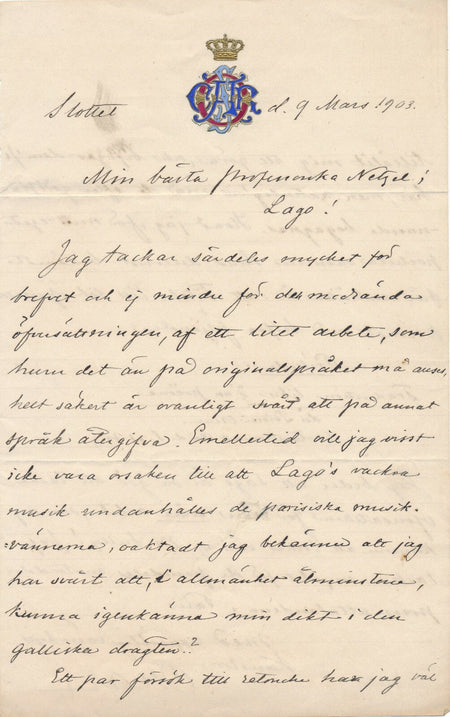 Slottet d. 9 Mars 1903.
Min bästa Professorska Netzel;
Lago!
Jag tackar särdeles mycket för
brefvet och ej mindre för den medsända
öfversättningen, af ett litet arbete, som
huru det än på originalspråket må anses,
helt säkert är ovanligt svårt att på annat
språk återgifva. Emellertid vill jag visst
icke vara orsaken till att Lago's vackra
musik undanhålles de parisiska musik-
vännerna, oaktadt jag bekänner att jag
har svårt att, i allmänhet åtminstone,
kunna igenkänna min dikt i den
galliska drägten.?
Ett par försök till retouche har jag väl